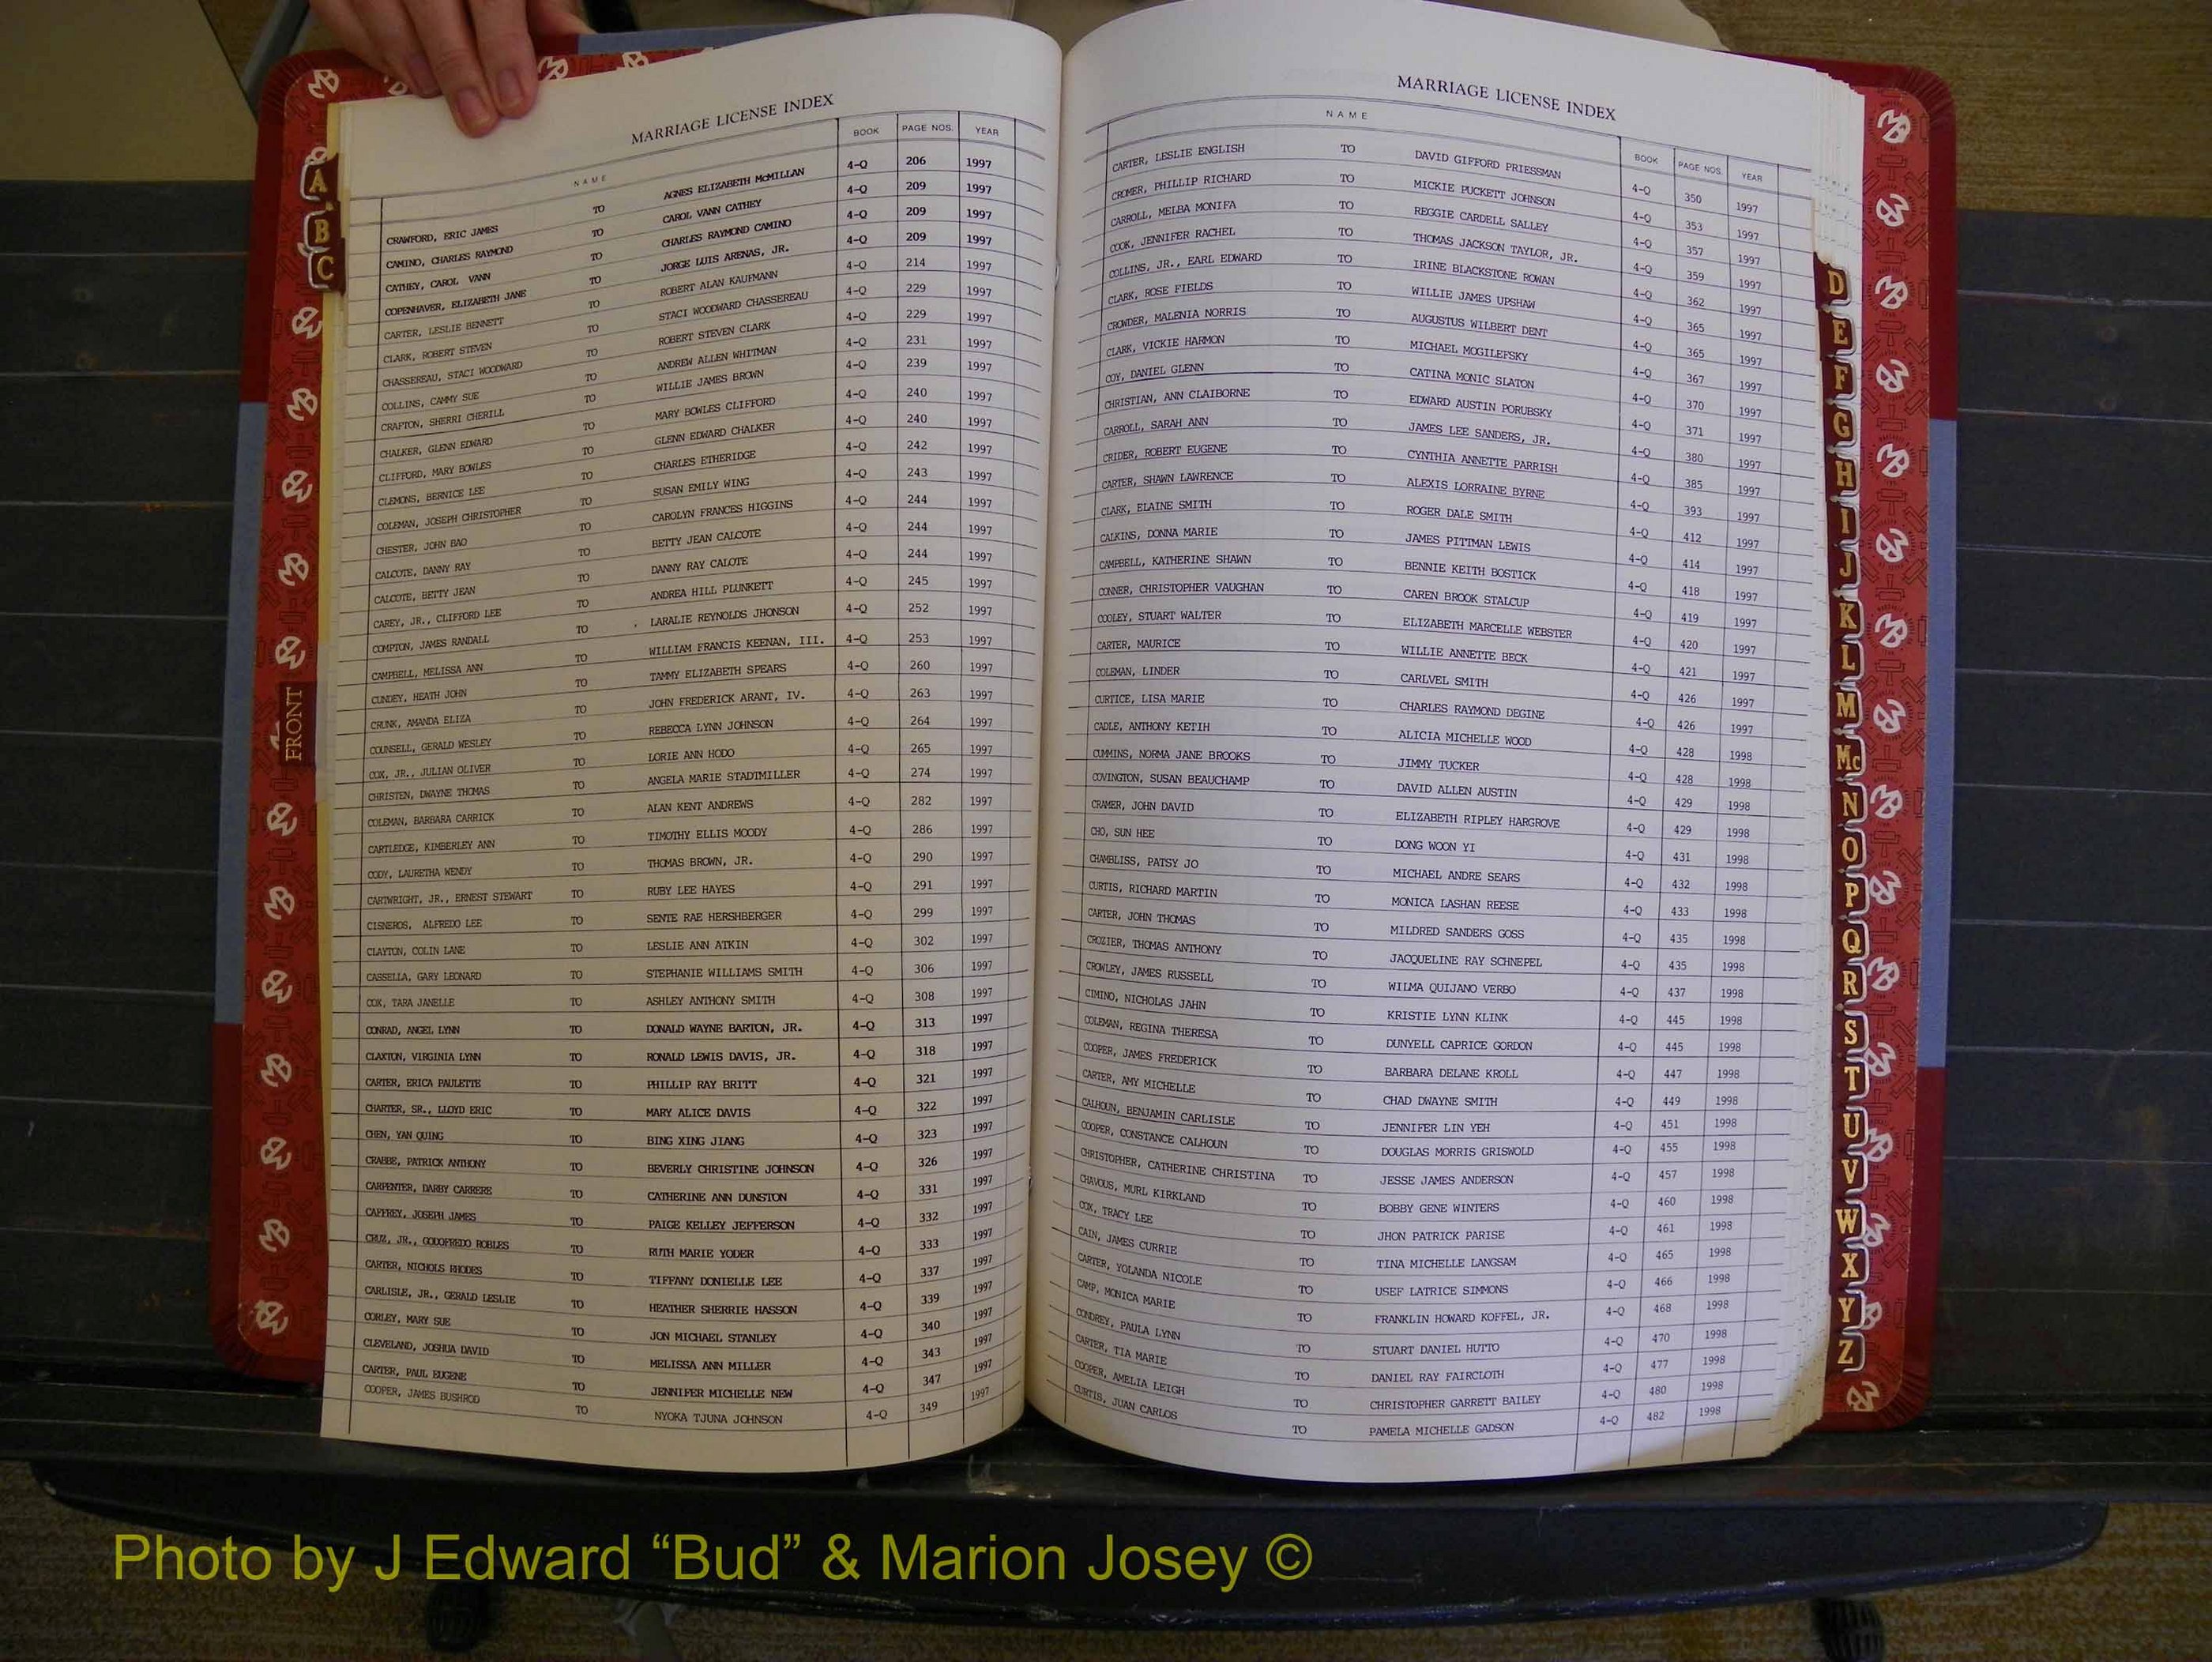 MARRIAGE LICENSE INDEX
NAME BOOK PAGE NOS. YEAR
CRAWFORD, ERIC JAMES TO AGNES ELIZABETH McMILLAN 4-Q 206 1997
CAMINO, CHARLES RAYMOND TO CAROL VANN CATHEY 4-Q 209 1997
CATHEY, CAROL VANN TO CHARLES RAYMOND CAMINO 4-Q 209 1997
COPENHAVER, ELIZABETH JANE TO JORGE LUIS ARENAS, JR. 4-Q 209 1997
CARTER, LESLIE BENNETT TO ROBERT ALAN KAUFMANN 4-Q 214 1997
CLARK, ROBERT STEVEN TO STACI WOODWARD CHASSEREAU 4-Q 229 1997
CHASSEREAU, STACI WOODWARD TO ROBERT STEVEN CLARK 4-Q 229 1997
COLLINS, CAMMY SUE TO ANDREW ALLEN WHITMAN 4-Q 231 1997
CRAFTON, SHERRI CHERILL TO WILLIE JAMES BROWN 4-Q 239 1997
CHALKER, GLENN EDWARD TO MARY BOWLES CLIFFORD 4-Q 240 1997
CLIFFORD, MARY BOWLES TO GLENN EDWARD CHALKER 4-Q 240 1997
CLEMONS, BERNICE LEE TO CHARLES ETHERIDGE 4-Q 242 1997
COLEMAN, JOSEPH CHRISTOPHER TO SUSAN EMILY WING 4-Q 243 1997
CHESTER, JOHN BAO TO CAROLYN FRANCES HIGGINS 4-Q 244 1997
CALCOTE, DANNY RAY TO BETTY JEAN CALCOTE 4-Q 244 1997
CALCOTE, BETTY JEAN TO DANNY RAY CALOTE 4-Q 244 1997
CAREY, JR., CLIFFORD LEE TO ANDREA HILL PLUNKETT 4-Q 245 1997
COMPTON, JAMES RANDALL TO LARALIE REYNOLDS JHONSON 4-Q 252 1997
CAMPBELL, MELISSA ANN TO WILLIAM FRANCIS KEENAN, III. 4-Q 253 1997
CUNDEY, HEATH JOHN TO TAMMY ELIZABETH SPEARS 4-Q 260 1997
CRUNK, AMANDA ELIZA TO JOHN FREDERICK ARANT, IV. 4-Q 263 1997
COUNSELL, GERALD WESLEY TO REBECCA LYNN JOHNSON 4-Q 264 1997
COX, JR., JULIAN OLIVER TO LORIE ANN HODO 4-Q 265 1997
CHRISTEN, DWAYNE THOMAS TO ANGELA MARIE STADTMILLER 4-Q 274 1997
COLEMAN, BARBARA CARRICK TO ALAN KENT ANDREWS 4-Q 282 1997
CARTLEDGE, KIMBERLEY ANN TO TIMOTHY ELLIS MOODY 4-Q 286 1997
CODY, LAURETHA WENDY TO THOMAS BROWN, JR. 4-Q 290 1997
CARTWRIGHT, JR., ERNEST STEWART TO RUBY LEE HAYES 4-Q 291 1997
CISNEROS, ALFREDO LEE TO SENTE RAE HERSHBERGER 4-Q 299 1997
CLAYTON, COLIN LANE TO LESLIE ANN ATKIN 4-Q 302 1997
CASSELLA, GARY LEONARD TO STEPHANIE WILLIAMS SMITH 4-Q 306 1997
COX, TARA JANELLE TO ASHLEY ANTHONY SMITH 4-Q 308 1997
CONRAD, ANGEL LYNN TO DONALD WAYNE BARTON, JR. 4-Q 313 1997
CLAXTON, VIRGINIA LYNN TO RONALD LEWIS DAVIS, JR. 4-Q 318 1997
CARTER, ERICA PAULETTE TO PHILLIP RAY BRITT 4-Q 321 1997
CHARTER, SR., LLOYD ERIC TO MARY ALICE DAVIS 4-Q 322 1997
CHEN, YAN QUING TO BING XING JIANG 4-Q 323 1997
CRABBE, PATRICK ANTHONY TO BEVERLY CHRISTINE JOHNSON 4-Q 326 1997
CARPENTER, DARBY CARRERE TO CATHERINE ANN DUNSTON 4-Q 331 1997
CAFFREY, JOSEPH JAMES TO PAIGE KELLEY JEFFERSON 4-Q 332 1997
CRUZ, JR., GODOFREDO ROBLES TO RUTH MARIE YODER 4-Q 333 1997
CARTER, NICHOLS RHODES TO TIFFANY DONIELLE LEE 4-Q 337 1997
CARLISLE, JR., GERALD LESLIE TO HEATHER SHERRIE HASSON 4-Q 339 1997
CORLEY, MARY SUE TO JON MICHAEL STANLEY 4-Q 340 1997
CLEVELAND, JOSHUA DAVID TO MELISSA ANN MILLER 4-Q 343 1997
CARTER, PAUL EUGENE TO JENNIFER MICHELLE NEW 4-Q 347 1997
COOPER, JAMES BUSHROD TO NYOKA TJUNA JOHNSON 4-Q 349 1997
MARRIAGE LICENSE INDEX
NAME BOOK PAGE NOS. YEAR
CARTER, LESLIE ENGLISH TO DAVID GIFFORD PRIESSMAN 4-Q 350 1997
CROMER, PHILLIP RICHARD TO MICKIE PUCKETT JOHNSON 4-Q 353 1997
CARROLL, MELBA MONIFA TO REGGIE CARDELL SALLEY 4-Q 357 1997
COOK, JENNIFER RACHEL TO THOMAS JACKSON TAYLOR, JR. 4-Q 359 1997
COLLINS, JR., EARL EDWARD TO IRINE BLACKSTONE ROWAN 4-Q 362 1997
CLARK, ROSE FIELDS TO WILLIE JAMES UPSHAW 4-Q 365 1997
CROWDER, MALENIA NORRIS TO AUGUSTUS WILBERT DENT 4-Q 365 1997
CLARK, VICKIE HARMON TO MICHAEL MOGILEFSKY 4-Q 367 1997
COY, DANIEL GLENN TO CATINA MONIC SLATON 4-Q 370 1997
CHRISTIAN, ANN CLAIBORNE TO EDWARD AUSTIN PORUBSKY 4-Q 371 1997
CARROLL, SARAH ANN TO JAMES LEE SANDERS, JR. 4-Q 380 1997
CRIDER, ROBERT EUGENE TO CYNTHIA ANNETTE PARRISH 4-Q 385 1997
CARTER, SHAWN LAWRENCE TO ALEXIS LORRAINE BYRNE 4-Q 393 1997
CLARK, ELAINE SMITH TO ROGER DALE SMITH 4-Q 412 1997
CALKINS, DONNA MARIE TO JAMES PITTMAN LEWIS 4-Q 414 1997
CAMPBELL, KATHERINE SHAWN TO BENNIE KEITH BOSTICK 4-Q 418 1997
CONNER, CHRISTOPHER VAUGHAN TO CAREN BROOK STALCUP 4-Q 419 1997
COOLEY, STUART WALTER TO ELIZABETH MARCELLE WEBSTER 4-Q 420 1997
CARTER, MAURICE TO WILLIE ANNETTE BECK 4-Q 421 1997
COLEMAN, LINDER TO CARLVEL SMITH 4-Q 426 1997
CURTICE, LISA MARIE TO CHARLES RAYMOND DEGINE 4-Q 426 1997
CADLE, ANTHONY KETIH TO ALICIA MICHELLE WOOD 4-Q 428 1998
CUMMINS, NORMA JANE BROOKS TO JIMMY TUCKER 4-Q 428 1998
COVINGTON, SUSAN BEAUCHAMP TO DAVID ALLEN AUSTIN 4-Q 429 1998
CRAMER, JOHN DAVID TO ELIZABETH RIPLEY HARGROVE 4-Q 429 1998
CHO, SUN HEE TO DONG WOON YI 4-Q 431 1998
CHAMBLISS, PATSY JO TO MICHAEL ANDRE SEARS 4-Q 432 1998
CURTIS, RICHARD MARTIN TO MONICA LASHAN REESE 4-Q 433 1998
CARTER, JOHN THOMAS TO MILDRED SANDERS GOSS 4-Q 435 1998
CROZIER, THOMAS ANTHONY TO JACQUELINE RAY SCHNEPEL 4-Q 435 1998
CROWLEY, JAMES RUSSELL TO WILMA QUIJANO VERBO 4-Q 437 1998
CIMINO, NICHOLAS JAHN TO KRISTIE LYNN KLINK 4-Q 445 1998
COLEMAN, REGINA THERESA TO DUNYELL CAPRICE GORDON 4-Q 445 1998
COOPER, JAMES FREDERICK TO BARBARA DELANE KROLL 4-Q 447 1998
CARTER, AMY MICHELLE TO CHAD DWAYNE SMITH 4-Q 449 1998
CALHOUN, BENJAMIN CARLISLE TO JENNIFER LIN YEH 4-Q 451 1998
COOPER, CONSTANCE CALHOUN TO DOUGLAS MORRIS GRISWOLD 4-Q 455 1998
CHRISTOPHER, CATHERINE CHRISTINA TO JESSE JAMES ANDERSON 4-Q 457 1998
CHAVOUS, MURL KIRKLAND TO BOBBY GENE WINTERS 4-Q 460 1998
COX, TRACY LEE TO JHON PATRICK PARISE 4-Q 461 1998
CAIN, JAMES CURRIE TO TINA MICHELLE LANGSAM 4-Q 465 1998
CARTER, YOLANDA NICOLE TO USEF LATRICE SIMMONS 4-Q 466 1998
CAMP, MONICA MARIE TO FRANKLIN HOWARD KOFFEL, JR. 4-Q 468 1998
CONDREY, PAULA LYNN TO STUART DANIEL HUTTO 4-Q 470 1998
CARTER, TIA MARIE TO DANIEL RAY FAIRCLOTH 4-Q 477 1998
COOPER, AMELIA LEIGH TO CHRISTOPHER GARRETT BAILEY 4-Q 480 1998
CURTIS, JUAN CARLOS TO PAMELA MICHELLE GADSON 4-Q 482 1998
A
B
C
FRONT
D
E
F
G
H
I
J
K
L
M
Mc
N
O
P
Q
R
S
T
U
V
W
X
Y
Z
Photo by J Edward “Bud” & Marion Josey ©